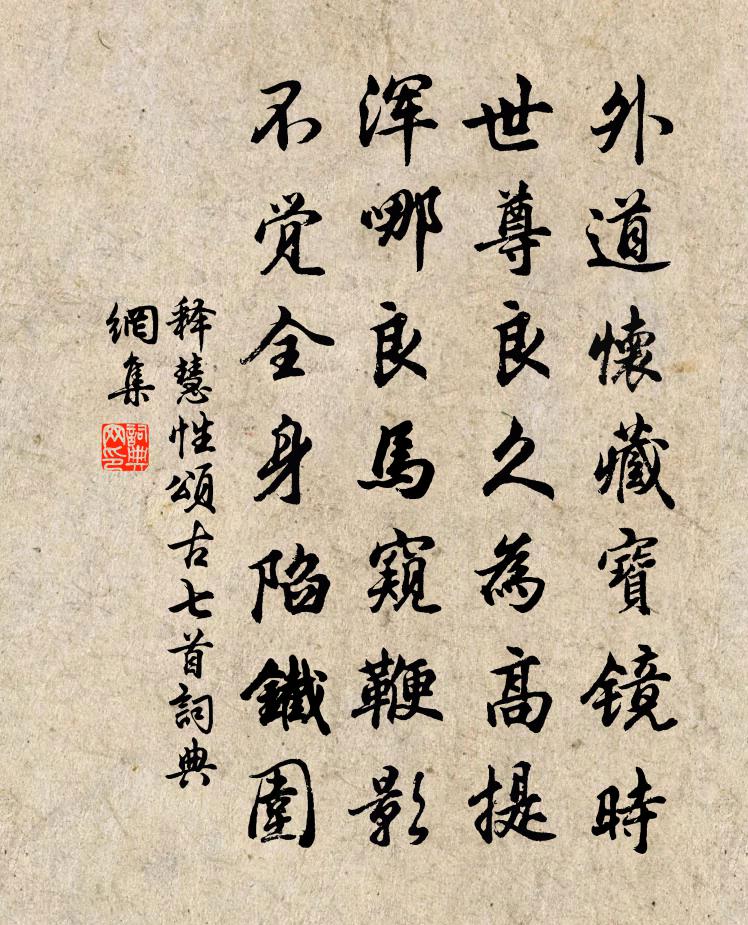 外道懷藏寶镜時
世尊良久為高提
浑哪良馬窺鞭影
不觉全身陷鐵圍
释慧性頌古七首詞典
網集
詞典
网印